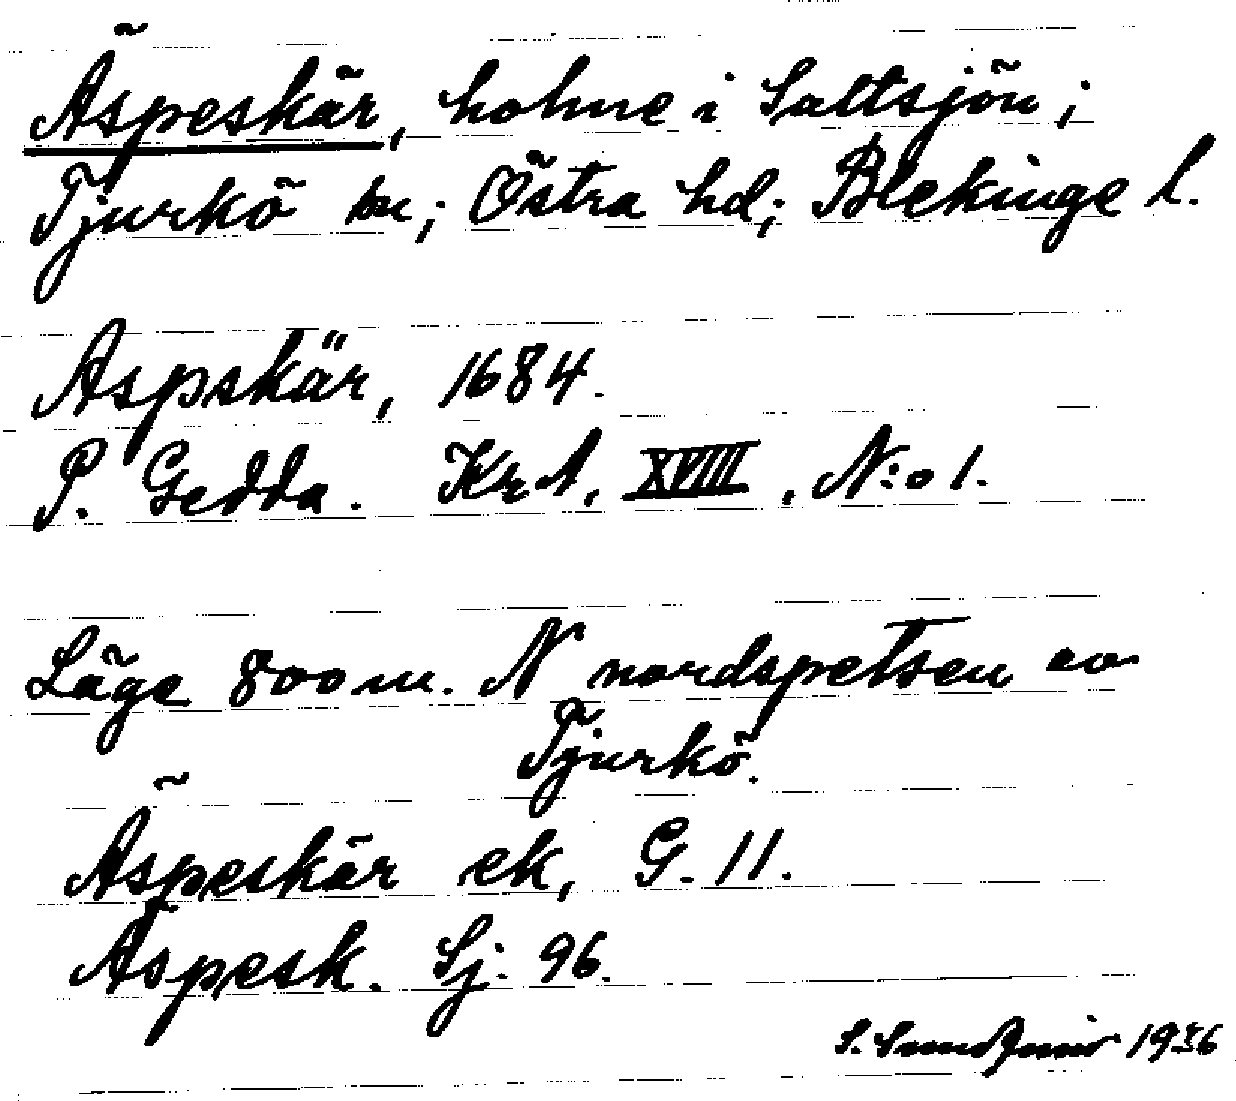 Äspeskär, holme i Saltsjön;
Tjurkö sn; Östra hd; Blekinge l.
Aspskär, 1684.
P. Gedda. KrA, XVIII, N:o 1.
Läge 800 m. N nordspetsen av
Tjurkö.
Äspeskär ek, G. 11.
Äspesk. Sj. 96.
S. 1936